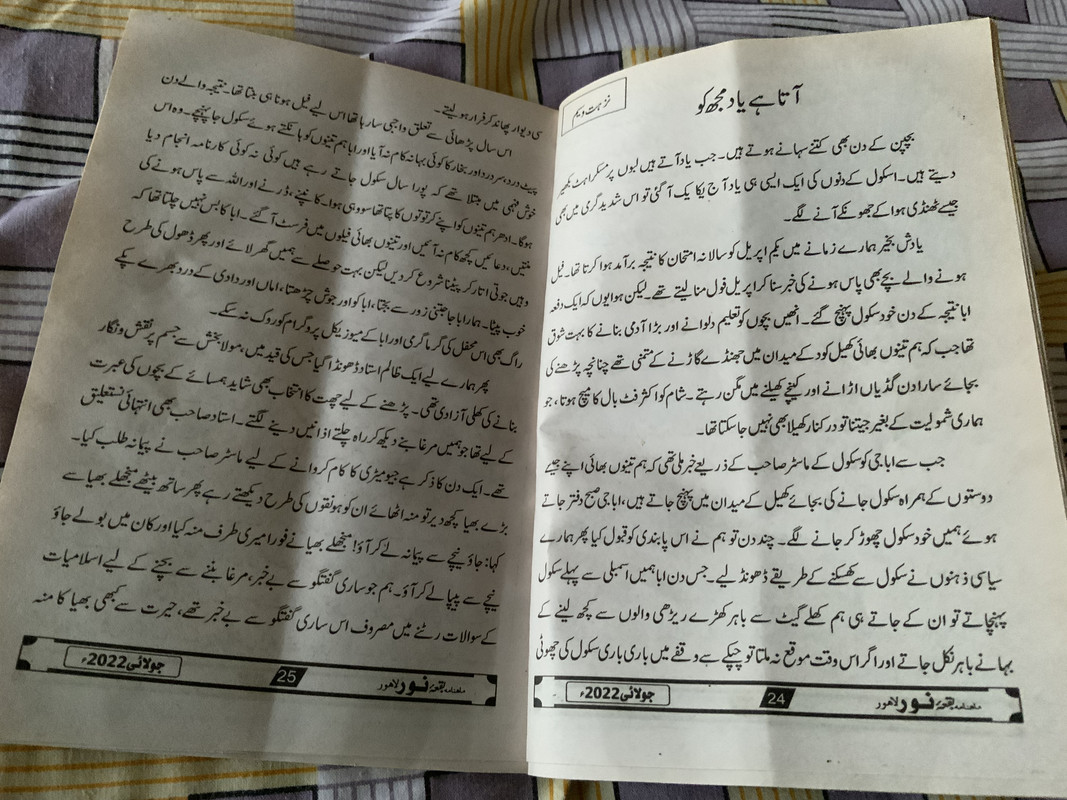 آتا ہے یاد مجھ کو
نزہت وسیم
بچپن کے دن بھی کتنے سہانے ہوتے ہیں۔ جب یاد آتے ہیں لبوں پر مسکراہٹ بکھیر
دیتے ہیں۔ اسکول کے دنوں کی ایک ایسی ہی یاد آج یکا یک آ گئی تو اس شدید گرمی میں بھی
جیسے ٹھنڈی ہوا کے جھونکے آنے لگے۔
یادش بخیر ہمارے زمانے میں یکم اپریل کو سالانہ امتحان کا نتیجہ برآمد ہوا کرتا تھا۔ فیل
ہونے والے بچے بھی پاس ہونے کی خبر سنا کر اپریل فول منا لیتے تھے۔ لیکن ہوا یوں کہ ایک دفعہ
ابا نتیجہ کے دن خود سکول پہنچ گئے۔ انھیں بچوں کو تعلیم دلوانے اور بڑا آدمی بنانے کا بہت شوق
تھا جب کہ ہم تینوں بھائی کھیل کود کے میدان میں جھنڈے گاڑنے کے متمنی تھے چنانچہ پڑھنے کی
بجائے سارا دن گڈیاں اڑانے اور کنچے کھیلنے میں مگن رہتے۔ شام کو اکثر فٹ بال کا میچ ہوتا، جو
ہماری شمولیت کے بغیر جیتنا تو درکنار کھیلا بھی نہیں جا سکتا تھا۔
جب سے ابا جی کو سکول کے ماسٹر صاحب کے ذریعے خبر ملی تھی کہ ہم تینوں بھائی اپنے جیسے
دوستوں کے ہمراہ سکول جانے کی بجائے کھیل کے میدان میں پہنچ جاتے ہیں، ابا جی صبح دفتر جاتے
ہوئے ہمیں خود سکول چھوڑ کر جانے لگے۔ چند دن تو ہم نے اس پابندی کو قبول کیا پھر ہمارے
سیاسی ذہنوں نے سکول سے کھسکنے کے طریقے ڈھونڈ لیے۔ جس دن ابا ہمیں اسمبلی سے پہلے سکول
پہنچاتے تو ان کے جاتے ہی ہم کھلے گیٹ سے باہر کھڑے ریڑھی والوں سے کچھ لینے کے
بہانے باہر نکل جاتے اور اگر اس وقت موقع نہ ملتا تو چپکے سے وقفے میں باری باری سکول کی چھوٹی
ماہنامہ بقعۂ نور لاہور 24 جولائی 2022ء
سی دیوار پھاند کر فرار ہو لیتے۔
اس سال پڑھائی سے تعلق واجبی سا رہا تھا اس لیے فیل ہونا ہی بنتا تھا۔ نتیجہ والے دن
پیٹ درد، سر درد اور بخار کا کوئی بہانہ کام نہ آیا اور ابا ہم تینوں کو ہانکتے ہوئے سکول جا پہنچے۔ وہ اس
خوش فہمی میں مبتلا تھے کہ پورا سال سکول جاتے رہے ہیں کوئی نہ کوئی کارنامہ انجام دیا
ہوگا۔ ادھر ہم تینوں کو اپنے کرتوتوں کا پتا تھا سو وہی ہوا۔ کانپنے، ڈرنے اور اللہ سے پاس ہونے کی
منتیں، دعائیں کچھ کام نہ آئیں اور تینوں بھائی فیلوں میں فرسٹ آ گئے۔ ابا کا بس نہیں چلتا تھا کہ
وہیں جوتی اتار کر پیٹنا شروع کر دیں لیکن بہت حوصلے سے ہمیں گھر لائے اور پھر ڈھول کی طرح
خوب پیٹا۔ ہمارا باجا جتنی زور سے بجتا، ابا کو اور جوش چڑھتا، اماں اور دادی کے درد بھرے پکے
راگ بھی اس محفل کی گرما گرمی اور ابا کے میوزیکل پروگرام کو روک نہ سکے۔
پھر ہمارے لیے ایک ظالم استاد ڈھونڈا گیا جس کی قید میں، مولا بخش سے جسم پر نقش و نگار
بنانے کی کھلی آزادی تھی۔ پڑھنے کے لیے چھت کا انتخاب بھی شاید ہمسائے کے بچوں کی عبرت
کے لیے تھا جو ہمیں مرغا بنے دیکھ کر راہ چلتے اذانیں دینے لگتے۔ استاد صاحب بھی انتہائی نستعلیق
تھے۔ ایک دن کا ذکر ہے جیومیٹری کا کام کروانے کے لیے ماسٹر صاحب نے پیمانہ طلب کیا۔
بڑے بھیا کچھ دیر تو منہ اٹھائے ان کو ہونقوں کی طرح دیکھتے رہے پھر ساتھ بیٹھے منجھلے بھیا سے
کہا: جاؤ نیچے سے پیمانہ لے کر آؤ! منجھلے بھیا نے فورا میری طرف منہ کیا اور کان میں بولے جاؤ
نیچے سے پیپا لے کر آؤ۔ ہم جو ساری گفتگو سے بے خبر، مرغا بننے سے بچنے کے لیے اسلامیات
کے سوالات رٹنے میں مصروف اس ساری گفتگو سے بے خبر تھے، حیرت سے کبھی بھیا کا منہ
ماہنامہ بقعۂ نور لاہور 25 جولائی 2022ء